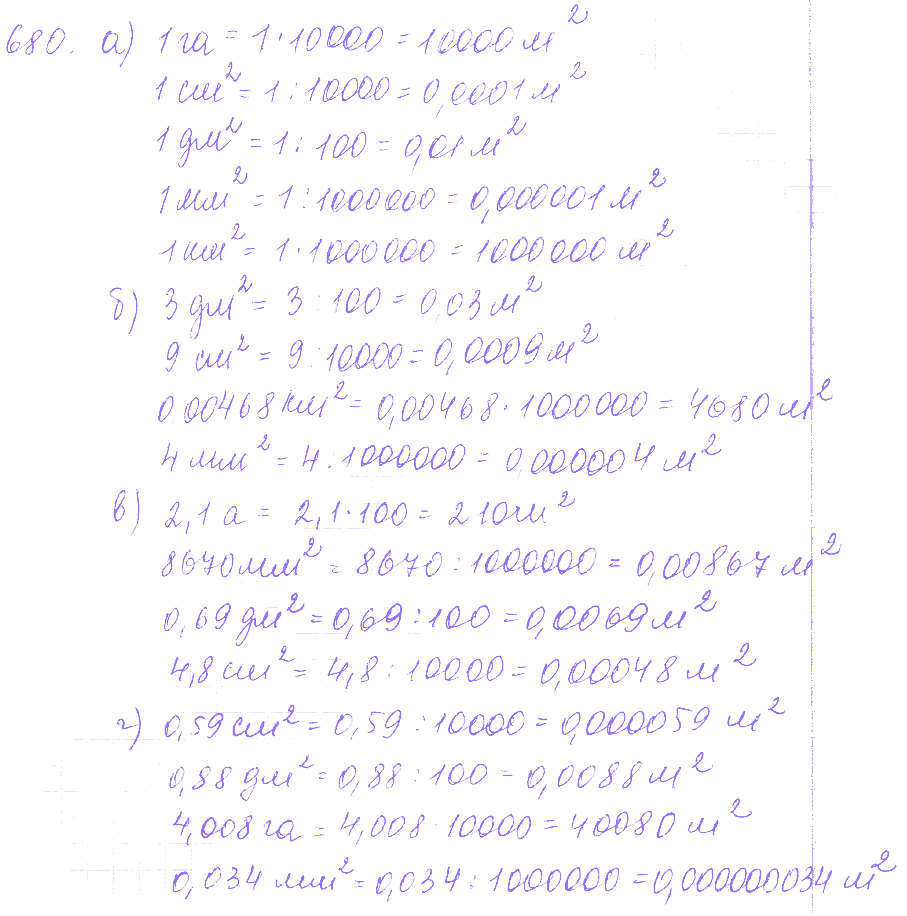 680. а) 1 га = 1·10000 = 10000 м²
1 см² = 1 : 10000 = 0,0001 м²
1 дм² = 1 : 100 = 0,01 м²
1 мм² = 1 : 1000000 = 0,000001 м²
1 км² = 1·1000000 = 1000000 м²
б) 3 дм² = 3 : 100 = 0,03 м²
9 см² = 9 : 10000 = 0,0009 м²
0,00468 км² = 0,00468·1000000 = 4680 м²
4 мм² = 4 : 1000000 = 0,000004 м²
в) 2,1 а = 2,1·100 = 210 м²
8670 мм² = 8670 : 1000000 = 0,00867 м²
0,69 дм² = 0,69 : 100 = 0,0069 м²
4,8 см² = 4,8 : 10000 = 0,00048 м²
г) 0,59 см² = 0,59 : 10000 = 0,000059 м²
0,88 дм² = 0,88 : 100 = 0,0088 м²
4,008 га = 4,008·10000 = 40080 м²
0,034 мм² = 0,034 : 1000000 = 0,000000034 м²